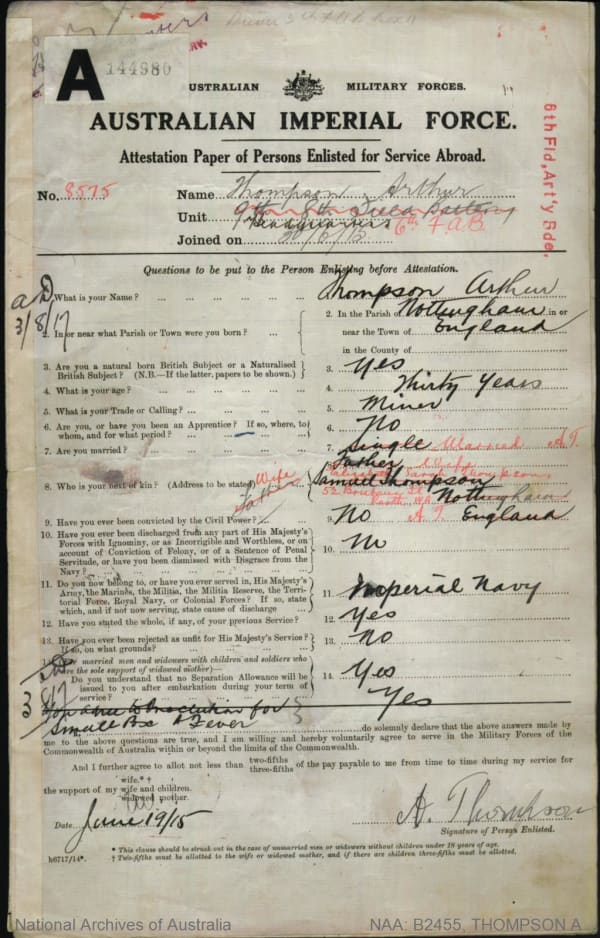 A 144980
AUSTRALIAN MILITARY FORCES.
AUSTRALIAN IMPERIAL FORCE.
6th Fld, Art'y Bde.
Attestation Paper of Persons Enlisted for Service Abroad.
No. 8575 Name Thompson Arthur
Unit 9th 8th Field Battery
Headquarters 6th F.A.B
Joined on
Questions to be put to the Person Enlisting before Attestation.
What is your Name? Thompson Arthur
3/8/17
2. In or near what Parish or Town were you born? 2. In the Parish of Nottingham in or
near the Town of England
in the County of
3. Are you a natural born British Subject or a Naturalised
British Subject? (N.B.—If the latter, papers to be shown.) 3. Yes
4. What is your age? 4. Thirty Years
5. What is your Trade or Calling? 5. Miner
6. Are you, or have you been an Apprentice? If so, where, to
whom, and for what period? 6. No
7. Are you married? 7. Single Married A.T.
8. Who is your next of kin? (Address to be stated) Wife Father 8. Father Wife
Thompson
Samuel Thompson
52 St Perth WA Nottingham
A.T. England
9. Have you ever been convicted by the Civil Power? 9. No
10. Have you ever been discharged from any part of His Majesty's
Forces with Ignominy, or as Incorrigible and Worthless, or on
account of Conviction of Felony, or of a Sentence of Penal
Servitude, or have you been Dismissed with Disgrace from the
Navy? 10. No
11. Do you now belong to, or have you ever served in, His Majesty's
Army, the Marines, the Militia, the Militia Reserve, the Terri-
torial Force, Royal Navy, or Colonial Forces? If so, state
which, and if not now serving, state cause of discharge 11. Imperial Navy
12. Have you stated the whole, if any, of your previous Service? 12. Yes
13. Have you ever been rejected as unfit for His Majesty's Service?
If so, on what grounds? 13. No
For married men and widowers with children and soldiers who
are the sole support of widowed mother—
Do you understand that no Separation Allowance will be
issued to you after embarkation during your term of
service? 14. Yes
Yes
Inoculation for
Small Pox & Fever
do solemnly declare that the above answers made by
me to the above questions are true, and I am willing and hereby voluntarily agree to serve in the Military Forces of the
Commonwealth of Australia within or beyond the limits of the Commonwealth.
And I further agree to allot not less than two-fifths three-fifths of the pay payable to me from time to time during my service for
wife.*†
the support of my wife and children.
widowed mother.
Date June 19/15 A. Thompson
Signature of Person Enlisted.
* This clause should be struck out in the case of unmarried men or widowers without children under 18 years of age.
h6717/14*. † Two-fifths must be allotted to the wife or widowed mother, and if there are children three-fifths must be allotted.
National Archives of Australia NAA: B2455, THOMPSON A